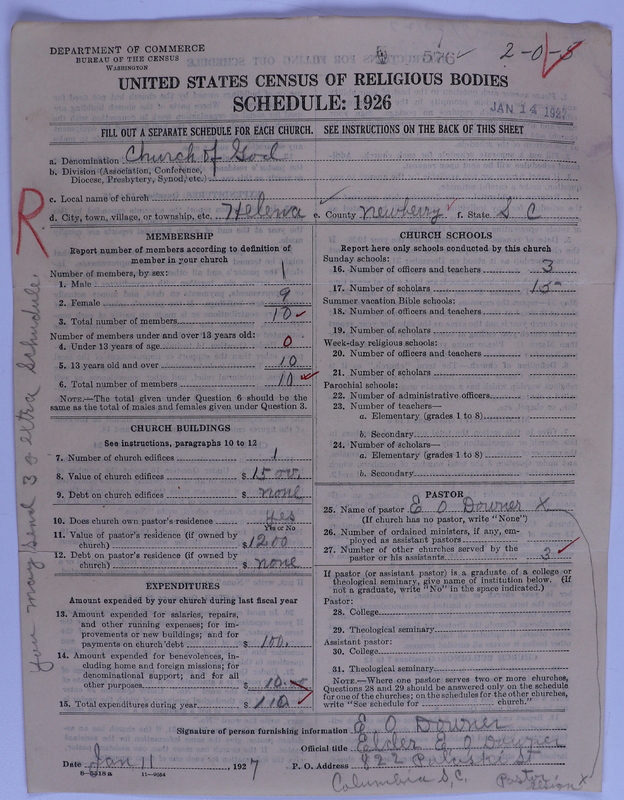 DEPARTMENT OF COMMERCE
BUREAU OF THE CENSUS
WASHINGTON
576
2-0-8
UNITED STATES CENSUS OF RELIGIOUS BODIES
SCHEDULE: 1926
JAN 14 1927
FILL OUT A SEPARATE SCHEDULE FOR EACH CHURCH. SEE INSTRUCTIONS ON THE BACK OF THIS SHEET
a. Denomination Church of God
b. Division (Association, Conference,
Diocese, Presbytery, Synod, etc.)
c. Local name of church
d. City, town, village, or township, etc. Helena e. County Newberry f. State S C
R
you may send 3 or extra Schedule.
MEMBERSHIP
Report number of members according to definition of
member in your church
Number of members, by sex:
1. Male 1
2. Female 9
3. Total number of members 10
Number of members under and over 13 years old:
4. Under 13 years of age 0
5. 13 years old and over 10
6. Total number of members 10
NOTE.—The total given under Question 6 should be
same as the total of males and females given under Question 3.
CHURCH BUILDINGS
See instructions, paragraphs 10 to 12
7. Number of church edifices 1
8. Value of church edifices $ 1500.
9. Debt on church edifices $ none
10. Does church own pastor's residence Yes
Yes or No
11. Value of pastor's residence (if owned by
church) $ 1200
12. Debt on pastor's residence (if owned by
church) $ none
EXPENDITURES
Amount expended by your church during last fiscal year
13. Amount expended for salaries, repairs,
and other running expenses; for im-
provements or new buildings; and for
payments on church debt $ 100.
14. Amount expended for benevolences, in-
cluding home and foreign missions; for
denominational support; and for all
other purposes $ 10.
15. Total expenditures during year $ 110
CHURCH SCHOOLS
Report here only schools conducted by this church
Sunday schools:
16. Number of officers and teachers 3
17. Number of scholars 15
Summer vacation Bible schools:
18. Number of officers and teachers
19. Number of scholars
Week-day religious schools:
20. Number of officers and teachers
21. Number of scholars
Parochial schools:
22. Number of administrative officers
23. Number of teachers—
a. Elementary (grades 1 to 8)
b. Secondary
24. Number of scholars—
a. Elementary (grades 1 to 8)
b. Secondary
PASTOR
25. Name of pastor E O Downer X
(If church has no pastor, write "None")
26. Number of ordained ministers, if any, em-
ployed as assistant pastors
27. Number of other churches served by the
pastor or his assistants 3
If pastor (or assistant pastor) is a graduate of a college or
theological seminary, give name of institution below. (If
not a graduate, write "No" in the space indicated.)
Pastor:
28. College
29. Theological seminary
Assistant pastor:
30. College
31. Theological seminary
NOTE.—Where one pastor serves two or more churches,
Questions 28 and 29 should be answered only on the schedule
for one of the churches; on the schedules for the other churches,
write "See schedule for church."
Signature of person furnishing information E O Downer
Official title Elder E O Downer
Date Jan 11 1927 P. O. Address 822 Pulaski St
8-5918a 11-9054
Columbia S, C.
Pastor